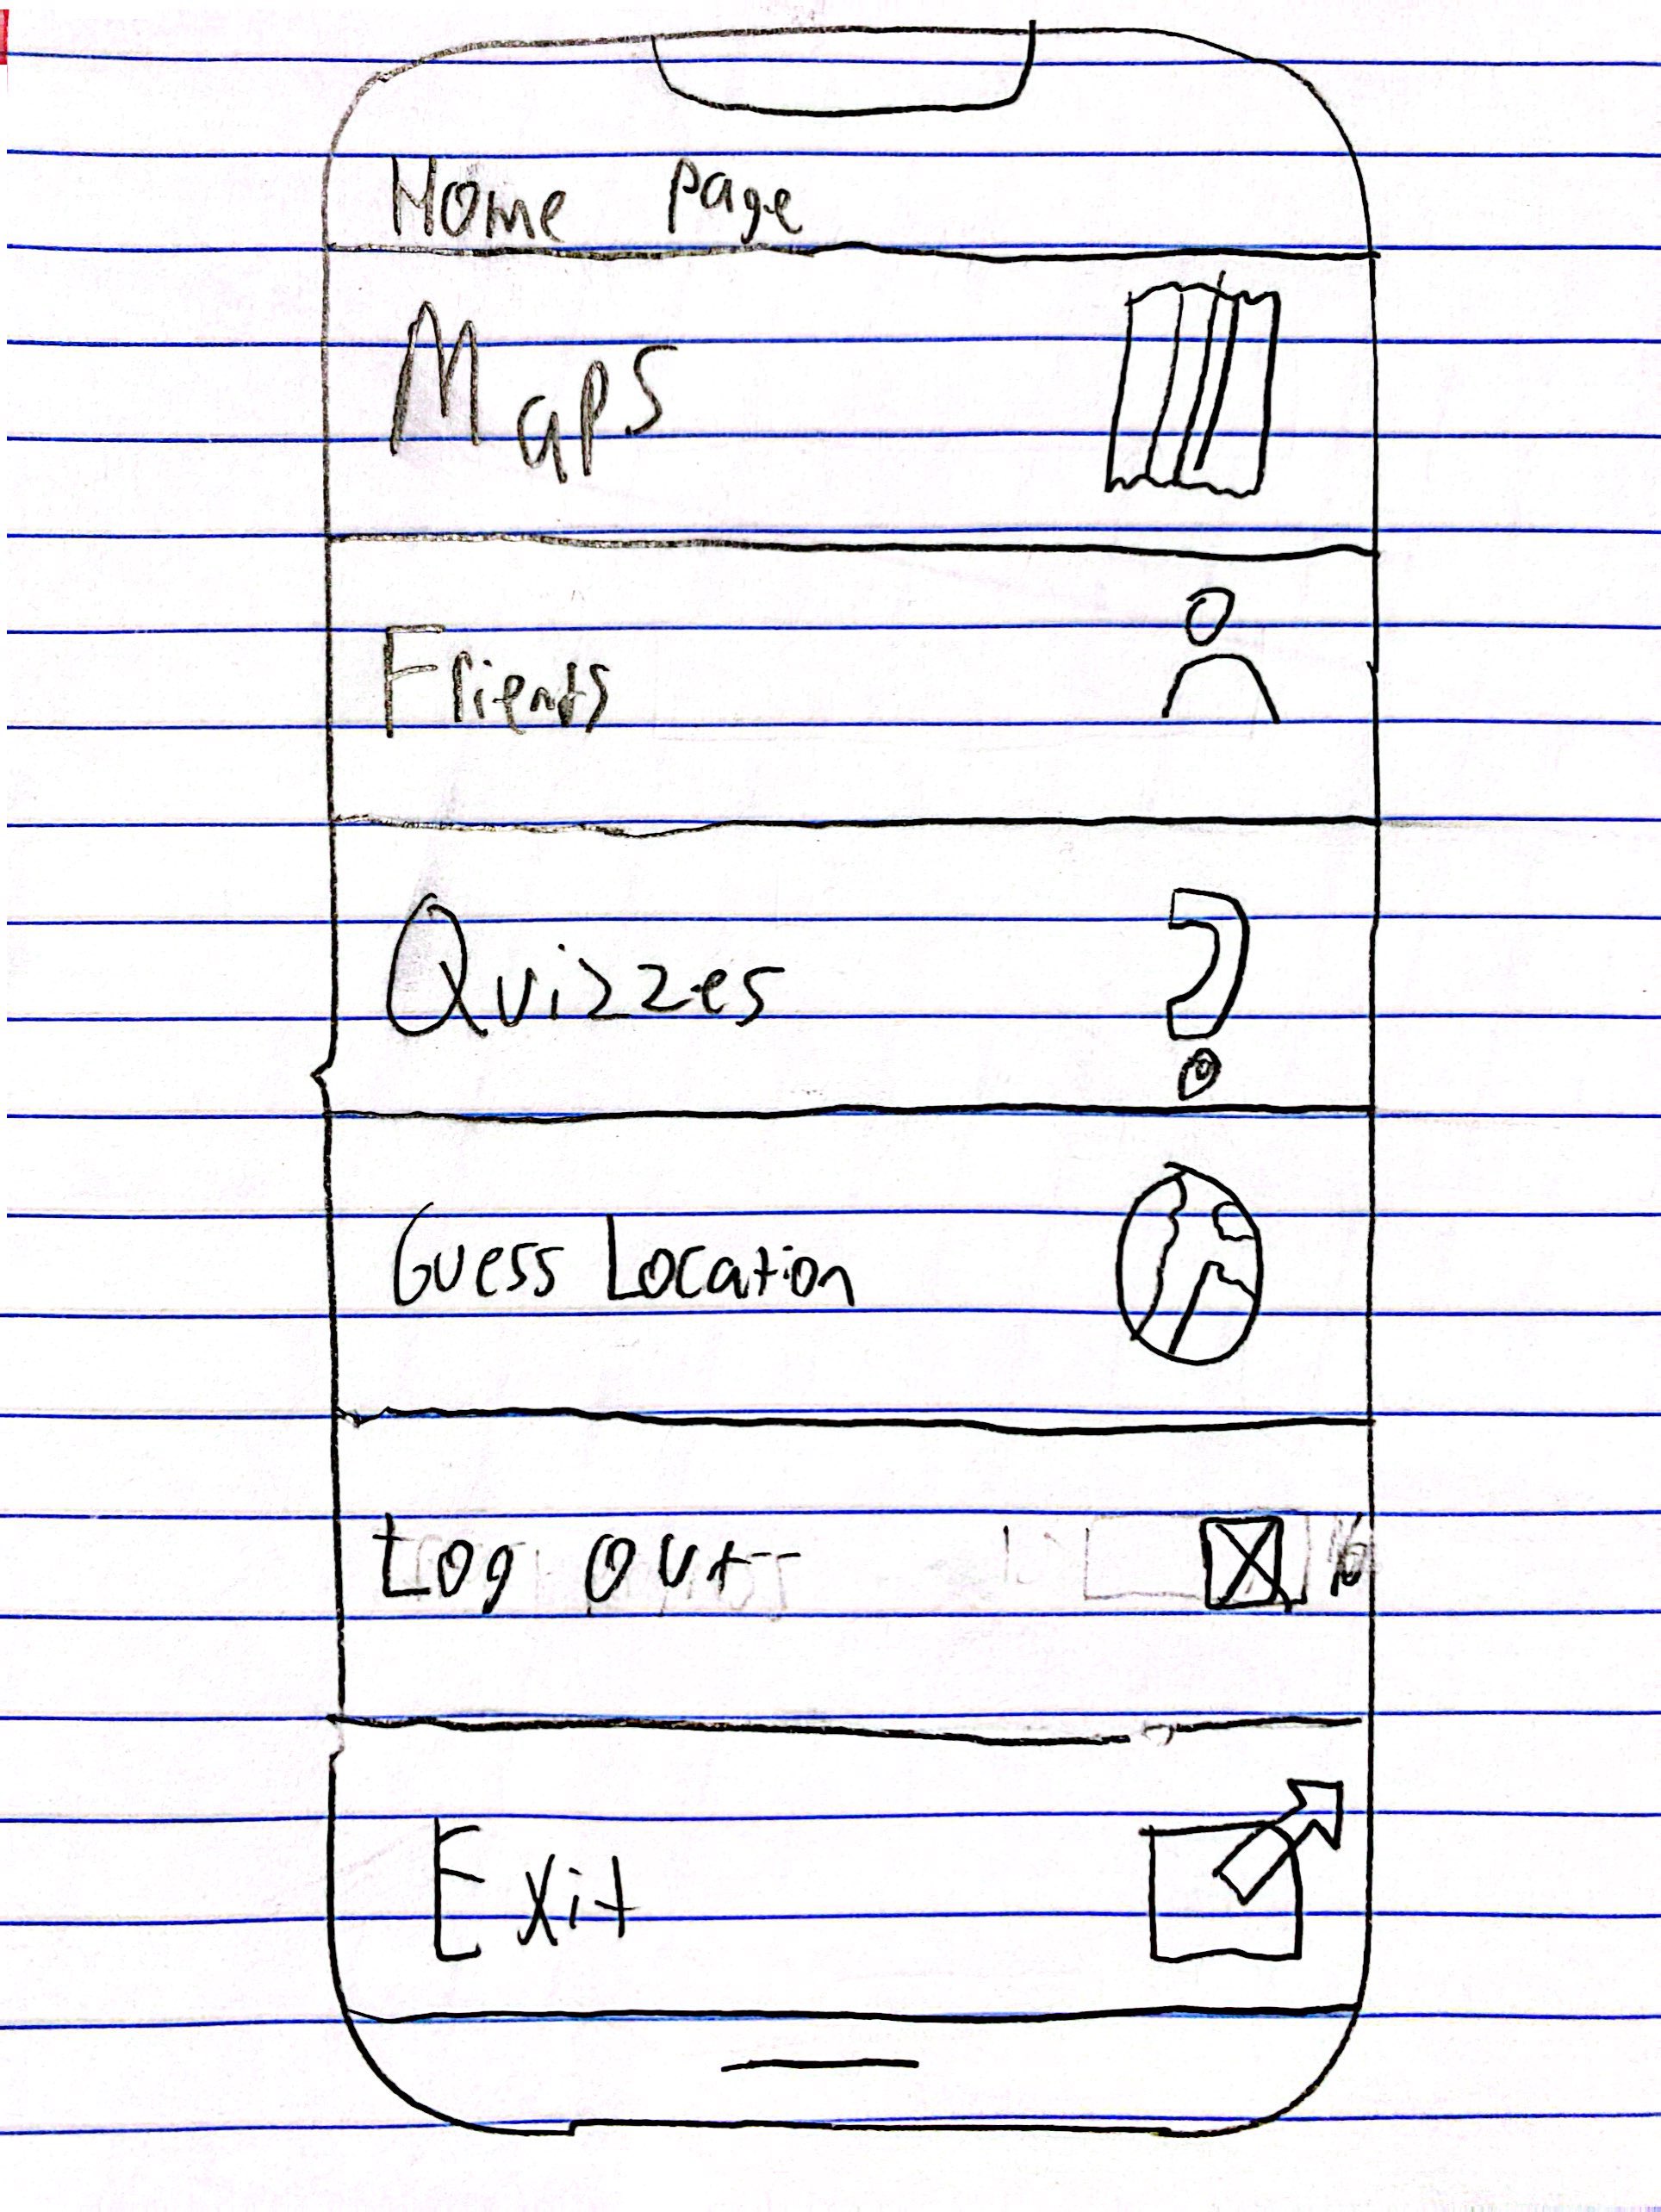 Home page
Maps
Frients
Quizzes
Guess Location
Log out
Exit